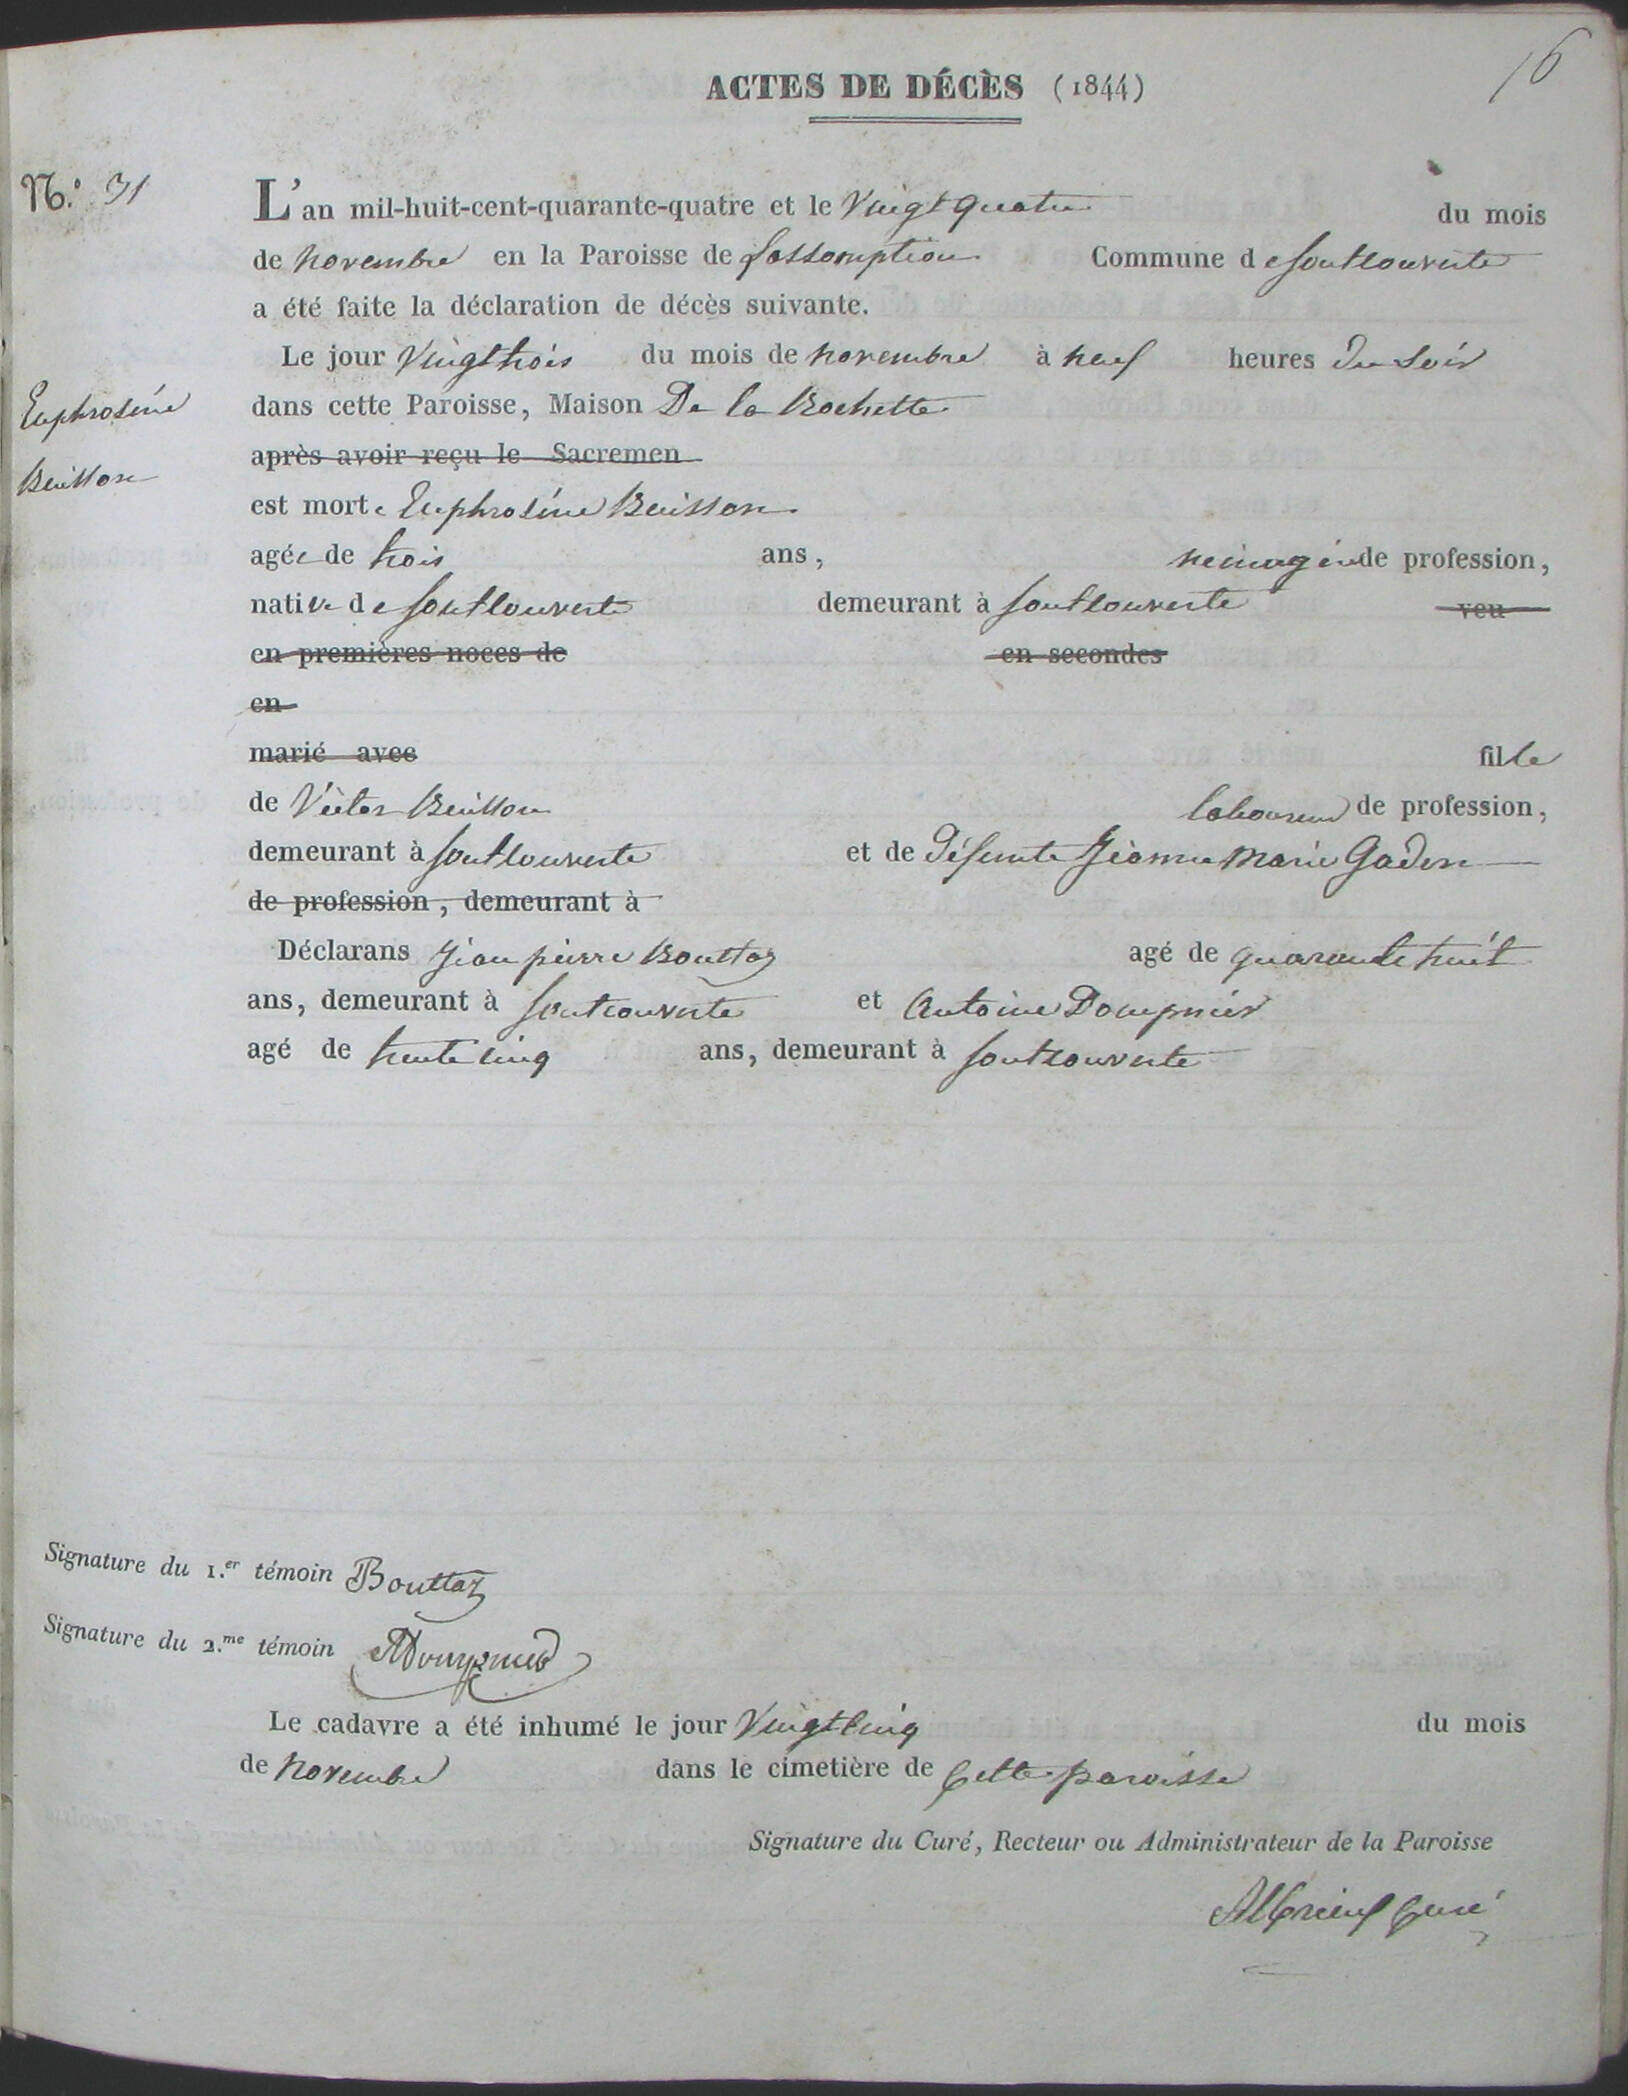 16
ACTES DE DÉCÈS (1844)
N.° 31
L'an mil-huit-cent-quarante-quatre et le Vingt quatre du mois
de novembre en la Paroisse de Lassomption Commune de fontcouverte
a été faite la déclaration de décès suivante.
Le jour Vingt trois du mois de novembre à neuf heures du soir
Euphrosine
dans cette Paroisse, Maison De la Rochette
après avoir reçu le Sacremen
Buisson
est morte Euphrosine Buisson
agée de trois ans, menagère de profession,
native de fontcouverte demeurant à fontcouverte veu
en premières noces de en secondes
en
marié avec fille
de Victor Buisson laboureur de profession,
demeurant à fontcouverte et de défunte Jeanne Marie Gadin
de profession, demeurant à
Déclarans Jean pierre Bouttaz agé de quarante huit
ans, demeurant à fontcouverte et Antoine Dompnier
agé de trente cinq ans, demeurant à fontcouverte
Signature du 1.er témoin Bouttaz
Signature du 2.me témoin ADompnier
Le cadavre a été inhumé le jour Vingt cinq du mois
de novembre dans le cimetière de cette paroisse
Signature du Curé, Recteur ou Administrateur de la Paroisse
Albrieux curé